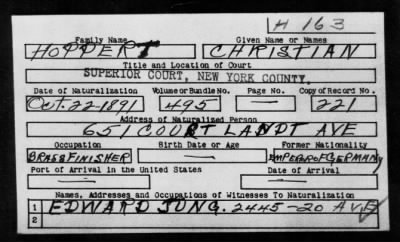 H 163
Family Name Given Name or Names
HOPPERT CHRISTIAN
Title and Location of Court
SUPERIOR COURT, NEW YORK COUNTY.
Date of Naturalization Volume or Bundle No. Page No. Copy of Record No.
Oct. 22-1891 495 — 221
Address of Naturalized Person
651 COURTLANDT AVE
Occupation Birth Date or Age Former Nationality
BRASS FINISHER — EMPEROR OF GERMANY
Port of Arrival in the United States Date of Arrival
— —
Names, Addresses and Occupations of Witnesses To Naturalization
1 EDWARD JUNG. 2445-20 AVE
2